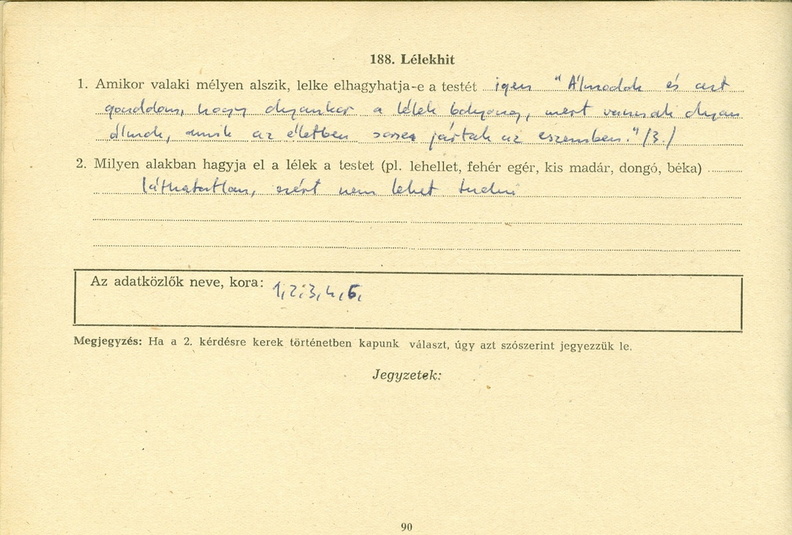 188. Lélekhit
1. Amikor valaki mélyen alszik, lelke elhagyhatja-e a testét igen "Álmodok és azt
gondolom, hogy olyankor a lélek bolyong, mert vannak olyan
álmok, amik az életben sose jártak az eszemben." /3./
2. Milyen alakban hagyja el a lélek a testet (pl. lehellet, fehér egér, kis madár, dongó, béka)
láthatatlan, ezért nem lehet tudni
Az adatközlők neve, kora: 1,2,3,4,5,
Megjegyzés: Ha a 2. kérdésre kerek történetben kapunk választ, úgy azt szószerint jegyezzük le.
Jegyzetek:
90